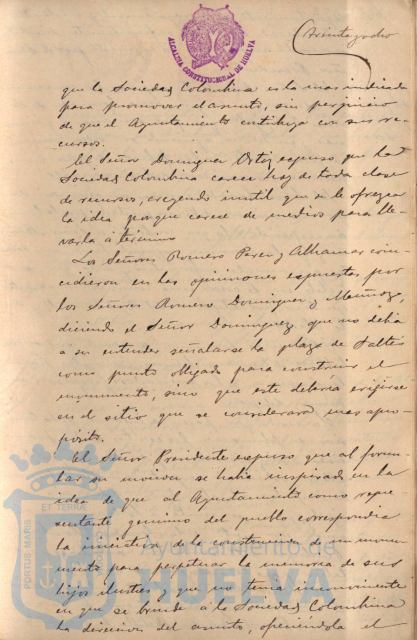 ALCALDIA CONSTITUCIONAL DE HUELVA
que la Sociedad Colombina es la mas indicada
para promover el asunto, sin perjuicio
de que el Ayuntamiento contribuya con sus re-
cursos.
El Señor Dominguez Ortiz expuso que la
Sociedad Colombina carece hoy de toda clase
de recursos, creyendo inutil que se le ofrezca
la idea porque carece de medios para lle-
varla á término
Los Señores Romero Perez y Alhama coin-
cidieron en las opiniones expuestas por
los Señores Romero Dominguez y Muñoz,
diciendo el Señor Dominguez que no debia
a su entender señalarse la plaza de Saltés
como punto obligado para construir el
monumento, sino que este deberia erigirse
en el sitio que se considerara mas apro-
pósito.
El Señor Presidente expuso que al formu-
lar su mocion se habia inspirado en la
idea de que al Ayuntamiento como repre-
sentante genuino del pueblo correspondia
la iniciativa de la construccion de un monu-
mento para perpetuar la memoria de sus
hijos ilustres y que no tenia inconveniente
en que se brinde á la Sociedad Colombina
la direccion del asunto, ofreciéndole el
PORTUS MARIS ET TERRÆ
Ayuntamiento de
HUELVA